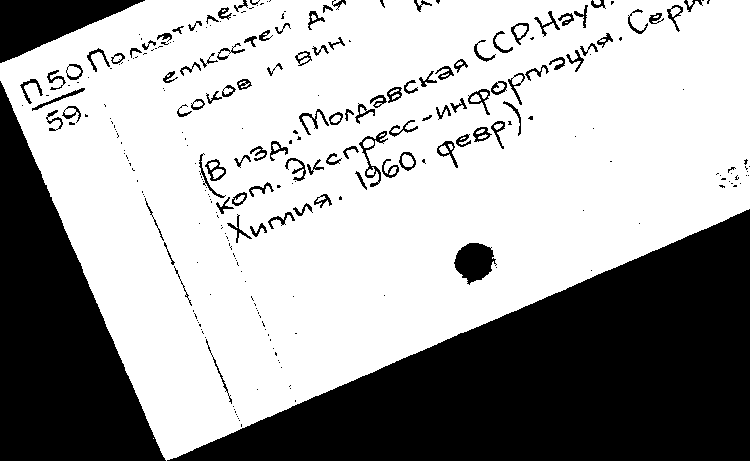 П.50 Полиэтилено
59.
емкостей для
соков и вин.
(В изд.: Молдавская ССР. Науч.
ком. Экспресс-информация. Серия
Химия. 1960. февр.).